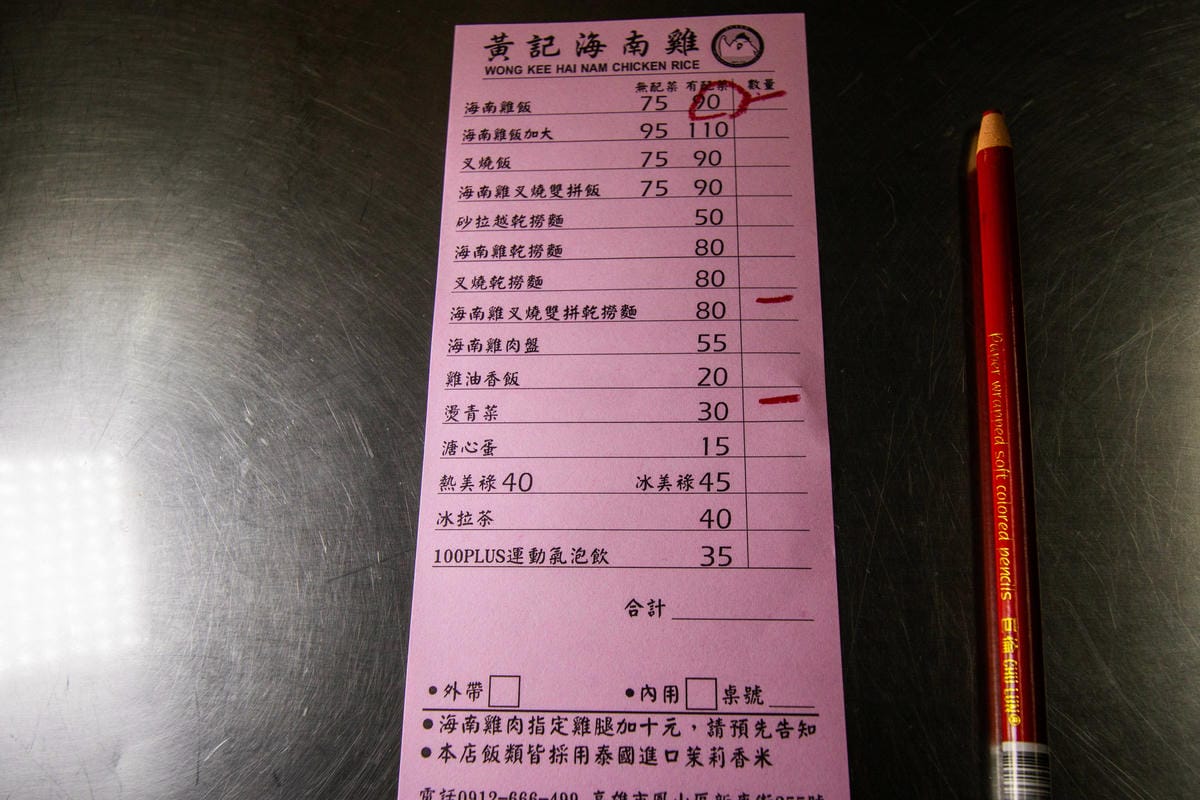 黃記海南雞
WONG KEE HAI NAM CHICKEN RICE
無配菜 有配菜 數量
海南雞飯 75 90
海南雞飯加大 95 110
叉燒飯 75 90
海南雞叉燒雙拼飯 75 90
砂拉越乾撈麵 50
海南雞乾撈麵 80
叉燒乾撈麵 80
海南雞叉燒雙拼乾撈麵 80
海南雞肉盤 55
雞油香飯 20
燙青菜 30
溏心蛋 15
熱美祿40 冰美祿45
冰拉茶 40
100PLUS運動氣泡飲 35
合計
•外帶 •內用 桌號
•海南雞肉指定雞腿加十元，請預先告知
•本店飯類皆採用泰國進口茉莉香米
電話0912-666-499 高雄市鳳山區新康街255號
Paper wrapped soft colored pencils CHU LUN®